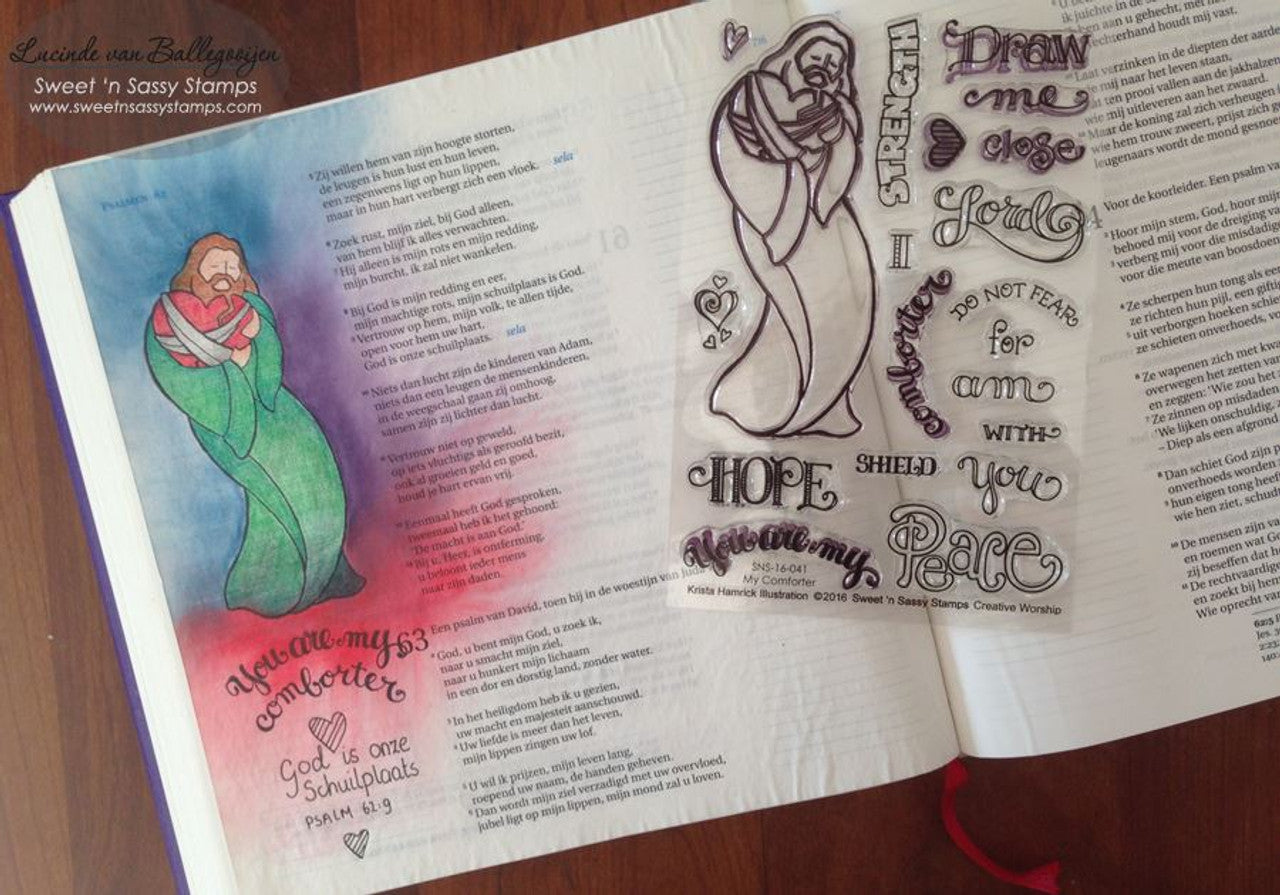 Lucinde van Ballegooijen
Sweet 'n Sassy Stamps
www.sweetnsassystamps.com
PSALMEN 62
⁵Zij willen hem van zijn hoogte storten,
de leugen is hun lust en hun leven,
een zegenwens ligt op hun lippen,
maar in hun hart verbergt zich een vloek. sela
⁶Zoek rust, mijn ziel, bij God alleen,
van hem blijf ik alles verwachten.
⁷Hij alleen is mijn rots en mijn redding,
mijn burcht, ik zal niet wankelen.
⁸Bij God is mijn redding en eer,
mijn machtige rots, mijn schuilplaats is God.
⁹Vertrouw op hem, mijn volk, te allen tijde,
open voor hem uw hart,
God is onze schuilplaats. sela
¹⁰Niets dan lucht zijn de kinderen van Adam,
niets dan een leugen de mensenkinderen,
in de weegschaal gaan zij omhoog,
samen zijn zij lichter dan lucht.
¹¹Vertrouw niet op geweld,
op iets vluchtigs als geroofd bezit,
ook al groeien geld en goed,
houd je hart ervan vrij.
¹²Eenmaal heeft God gesproken,
tweemaal heb ik het gehoord:
'De macht is aan God.'
¹³Bij u, Heer, is ontferming,
u beloont ieder mens
naar zijn daden.
63 Een psalm van David, toen hij in de woestijn van Juda
²God, u bent mijn God, u zoek ik,
naar u smacht mijn ziel,
naar u hunkert mijn lichaam
in een dor en dorstig land, zonder water.
³In het heiligdom heb ik u gezien,
uw macht en majesteit aanschouwd.
⁴Uw liefde is meer dan het leven,
mijn lippen zingen uw lof.
⁵U wil ik prijzen, mijn leven lang,
roepend uw naam, de handen geheven.
⁶Dan wordt mijn ziel verzadigd met uw overvloed,
jubel ligt op mijn lippen, mijn mond zal u loven.
You are my
comforter
God is onze
Schuilplaats
PSALM 62:9
STRENGTH
Draw
me
close
Lord
I
comforter
DO NOT FEAR
for
am
WITH
HOPE
SHIELD
You
You are my
Peace
SNS-16-041
My Comforter
Krista Hamrick Illustration ©2016 Sweet 'n Sassy Stamps Creative Worship
ik juichte in de
aan u gehecht, met
rechterhand houdt mij vast.
Laat verzinken in de diepten der aarde
mij naar het leven staan,
ten prooi vallen aan de jakhalzen
wie mij uitleveren aan het zwaard.
Maar de koning zal zich verheugen
wie hem trouw zweert, prijst zich
leugenaars wordt de mond gesnoerd
Voor de koorleider. Een psalm
²Hoor mijn stem, God, hoor mijn
behoed mij voor de dreiging van
³verberg mij voor de misdadige
voor die meute van boosdoen
⁴Ze scherpen hun tong als een
ze richten hun pijl, een giftig
⁵uit verborgen hoeken schie
ze schieten onverhoeds, vo
⁶Ze wapenen zich met kwa
overwegen het zetten van
en zeggen: 'Wie zou het
⁷Ze zinnen op misdaden
'We lijken onschuldig,
– Diep als een afgrond
⁸Dan schiet God zijn p
onverhoeds worden
⁹hun eigen tong heeft
wie hen ziet, schudt
¹⁰De mensen zijn van
en roemen wat Go
zij beseffen dat h
¹¹De rechtvaardige
en zoekt bij hem
Wie oprecht van